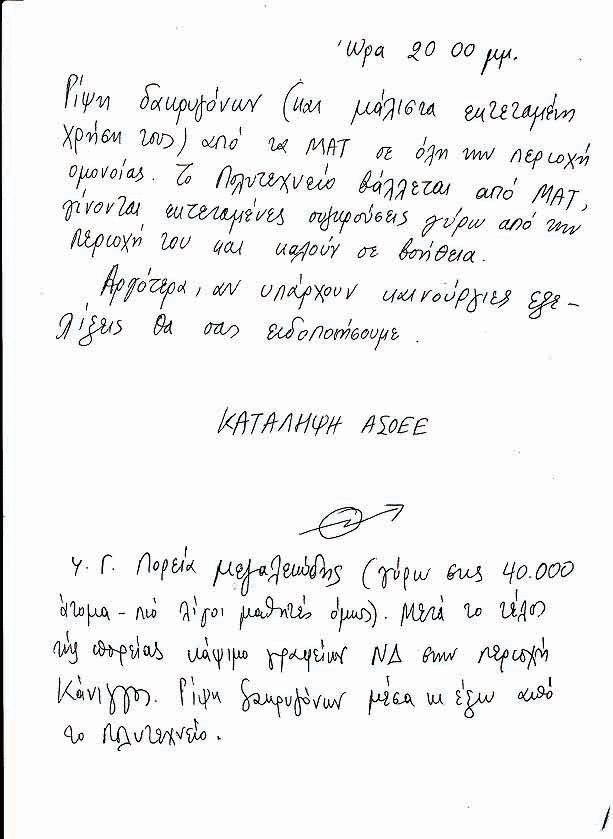 Ώρα 20 00 μμ.
Ρίψη δακρυγόνων (και μάλιστα εκτεταμένη
χρήση τους) από τα ΜΑΤ σε όλη την περιοχή
ομονοίας. Το Πολυτεχνείο βάλλεται από ΜΑΤ,
γίνονται εκτεταμένες συγκρούσεις γύρω από την
περιοχή του και καλούν σε βοήθεια.
Αργότερα, αν υπάρχουν καινούργιες εξε-
λίξεις θα σας ειδοποιήσουμε.
ΚΑΤΑΛΗΨΗ ΑΣΟΕΕ
Υ. Γ. Πορεία μεγαλειώδης (γύρω στις 40.000
άτομα - πιό λίγοι μαθητές όμως). Μετά το τέλος
της πορείας κάψιμο γραφείων ΝΔ στην περιοχή
Κάνιγγος. Ρίψη δακρυγόνων μέσα κι έξω από
το Πολυτεχνείο.